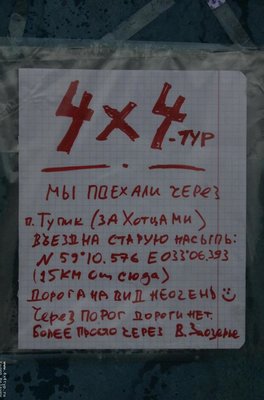 4x4-ТУР
МЫ ПОЕХАЛИ ЧЕРЕЗ
п. ТУПИК (ЗА ХОТЦАМИ)
ВЪЕЗД НА СТАРУЮ НАСЫПЬ:
N 59°10.576 E 033°06.393
(25КМ от сюда)
ДОРОГА НА ВИД НЕ ОЧЕНЬ☺
ЧЕРЕЗ ПОРОГ ДОРОГИ НЕТ.
БОЛЕЕ ПРОСТО ЧЕРЕЗ В. Заозерье